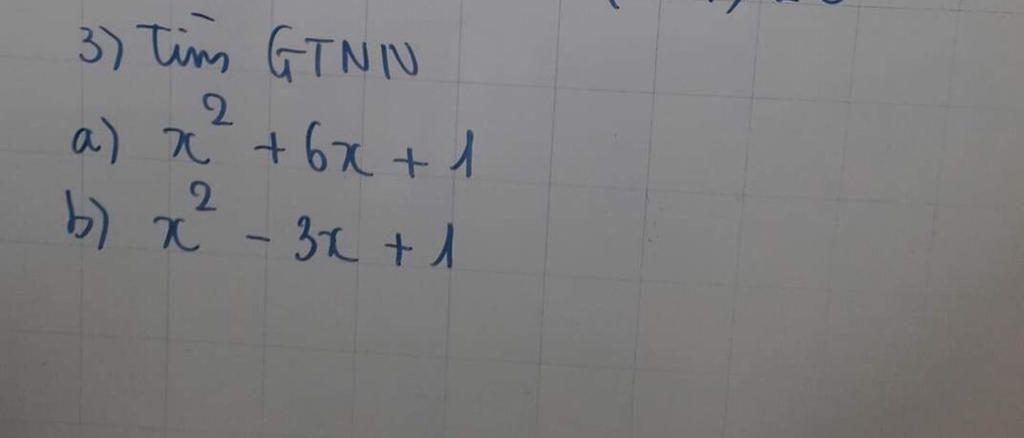 3) Tìm GTNN
a) x² + 6x + 1
b) x² - 3x + 1